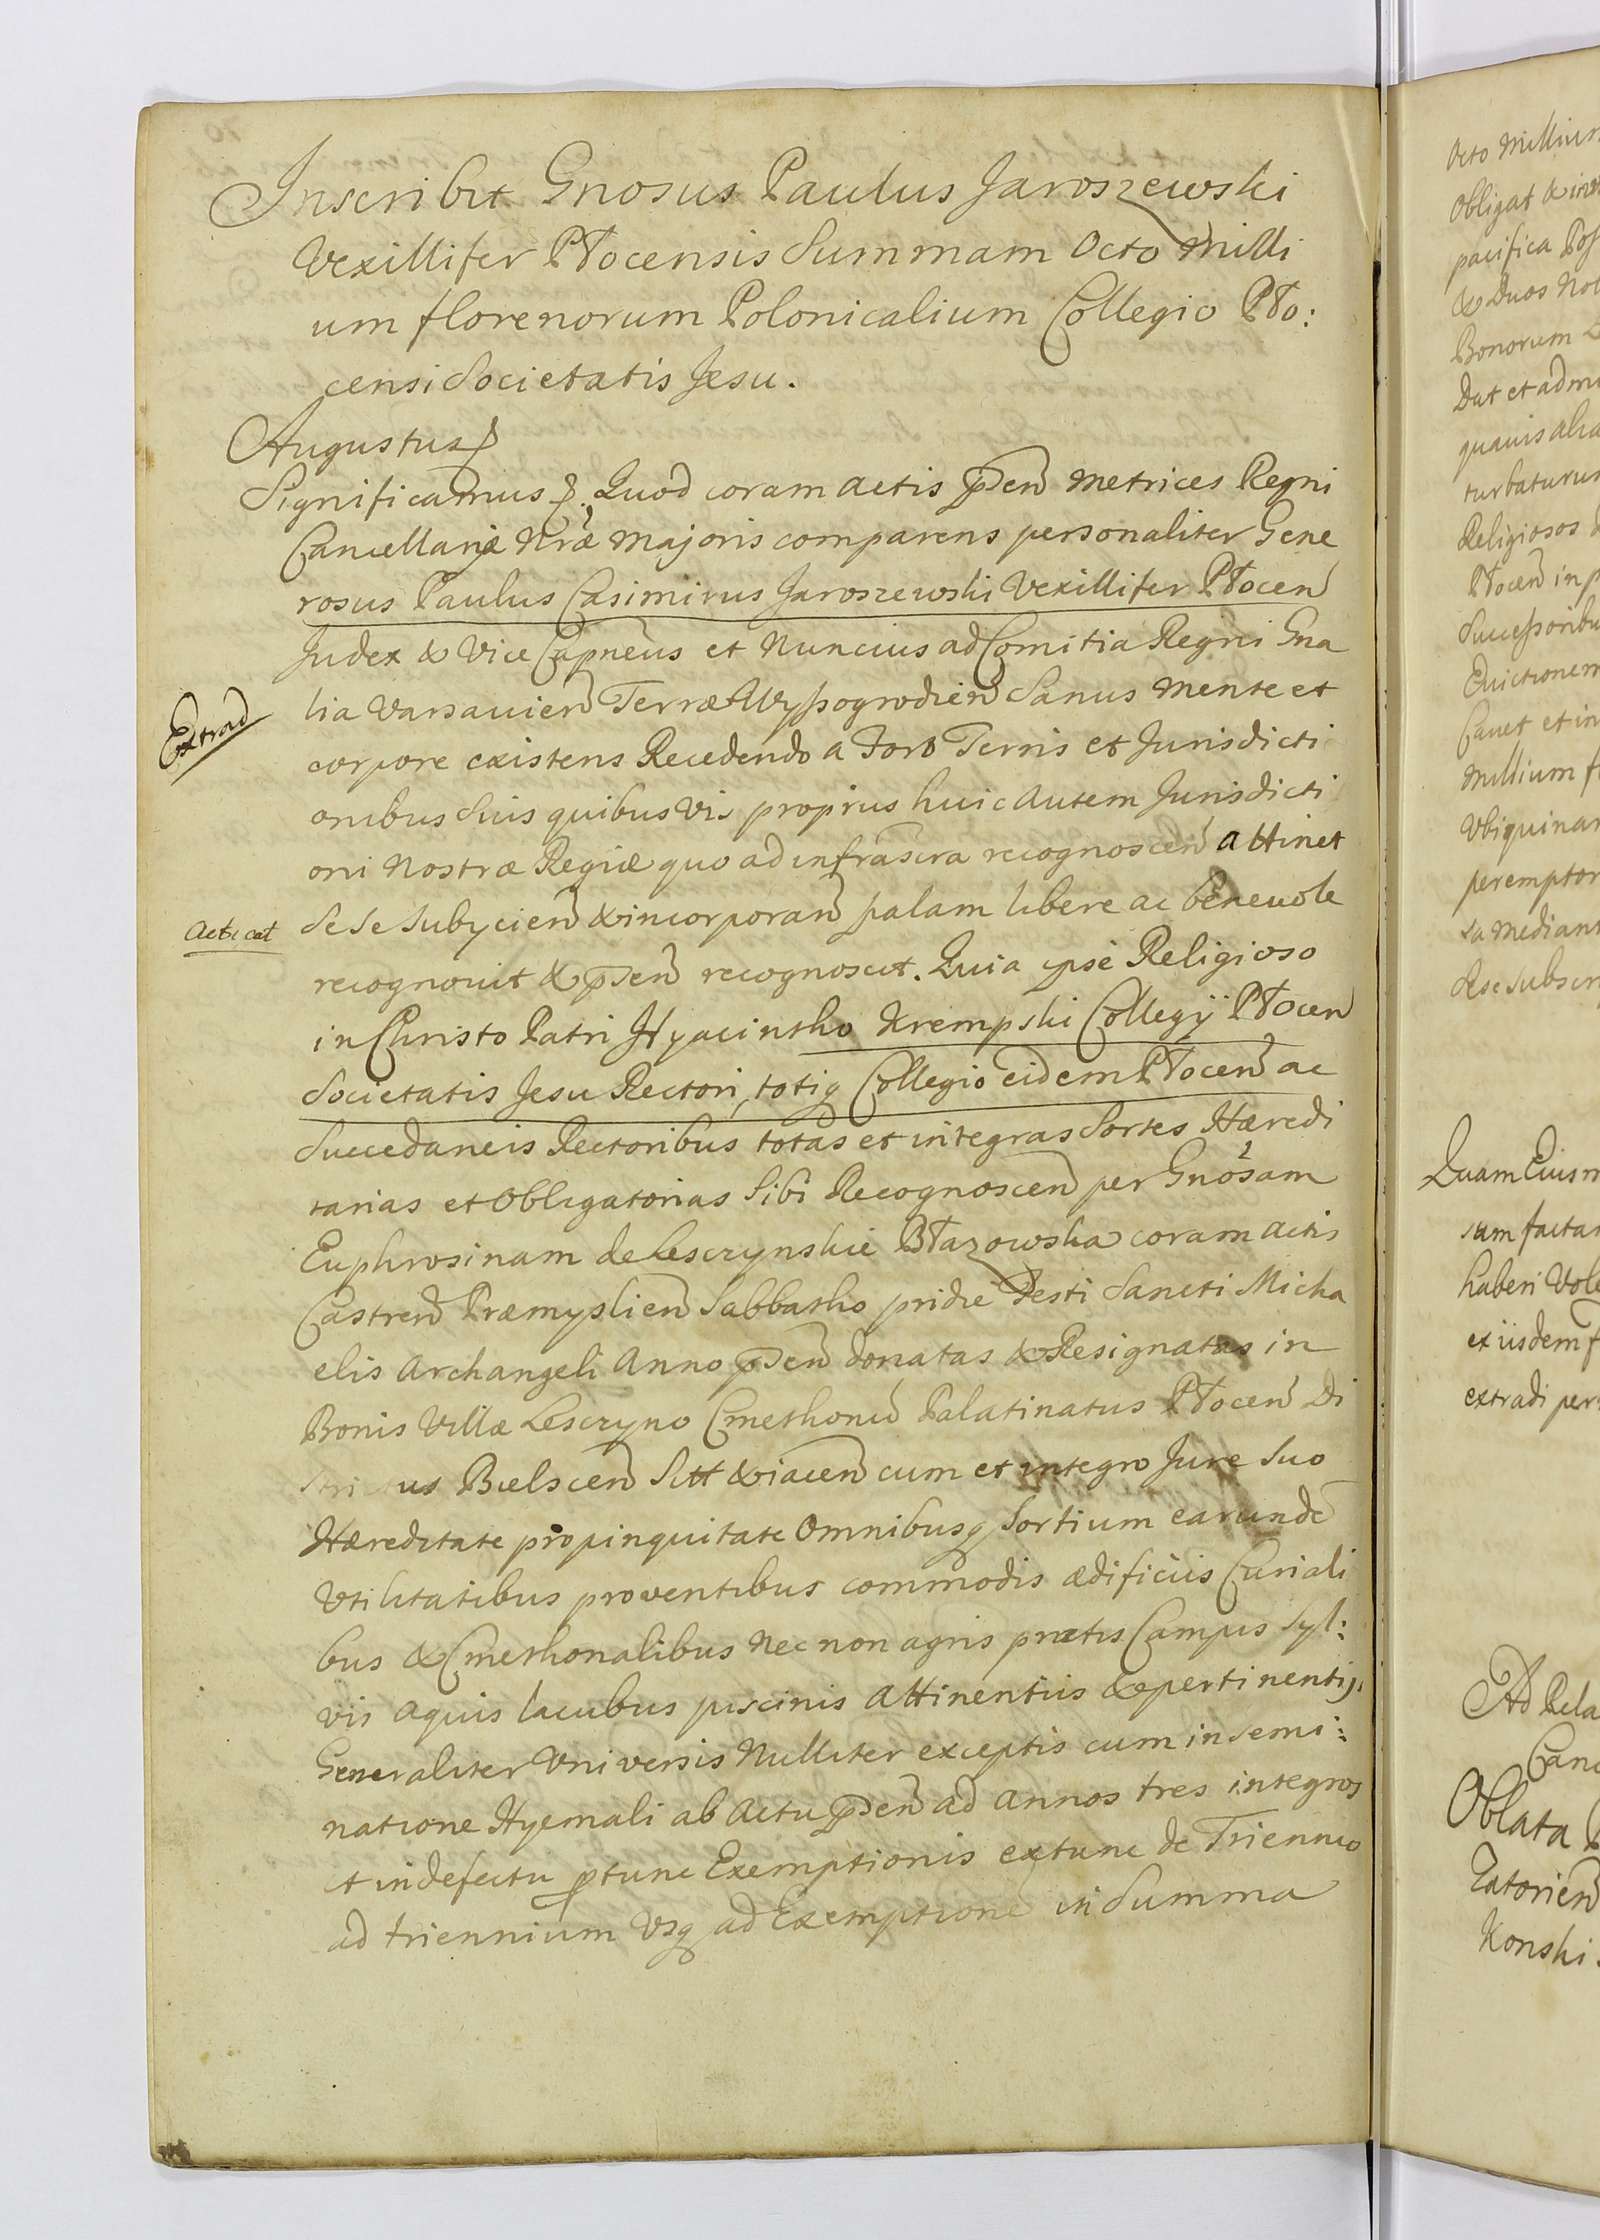 Inscribit Gnosus Paulus Jaroszewski
Vexillifer Płocensis Summam Octo Milli
um florenorum Polonicalium Collegio Pło:
censi Societatis Jesu.
Augustus
Significamus Quod coram actis pñsen Metrices Regni
Cancellariæ Nræ Majoris comparens personaliter Gene
rosus Paulus Casimirus Jaroszewski Vexillifer Płocen
Judex & Vice Capneus et Nuncius ad Comitia Regni Gna
lia Varsavien Terræ Wyssogrodien Sanus mente et
corpore existens Recedendo a Foro Terris et Jurisdicti
onibus Suis quibusvis proprius huic autem Jurisdicti
oni Nostræ Regiæ quo ad infrascra recognoscen attinet
Extrad
Sese Subycien & incorporan palam libere ac benevole
Acticat
recognovit & pñsen recognoscit. Quia ipse Religioso
in Christo Patri Hyacintho Krempski Collegÿ Płocen
Societatis Jesu Rectori, totiq Collegio eidem Płocen ac
Succedaneis Rectoribus totas et integras Sortes Hæredi
tarias et Obligatorias Sibi Recognoscen per Gnosam
Euphrosinam de Lesczynskie Błazowska coram actis
Castren Præmyslien Sabbatho pridie Festi Sancti Micha
elis Archangeli Anno pñsen donatas & Resignatas in
Bonis Villæ Lesczyno Cmethonu Palatinatus Płocen Di
strictus Bielscen Sitt & iacen cum et integro Jure Suo
Hæreditate propinquitate Omnibusq Sortium earunde
Utilitatibus proventibus commodis ædificiis Curiali
bus & Cmethonalibus Nec non agris pratis Campis Syl:
vis aquis lacubus piscinis attinentiis & pertinentijs
Generaliter Universis Nulliter exceptis cum insemi:
natione Hyemali ab Actu pñsen ad annos tres integros
et in defectu ptunc Exemptionis extunc de Triennio
ad triennium Usq ad Exemptione in Summa
Octo Millium
Obligat
pacifica
& Duos
Bonorum
Dat et
quavis
Religiosos
Płocen in
Evictionem
Cavet et in
Millium
Quam
haberi
ex iisdem
extradi per
Oblata
Zatorien
Konski